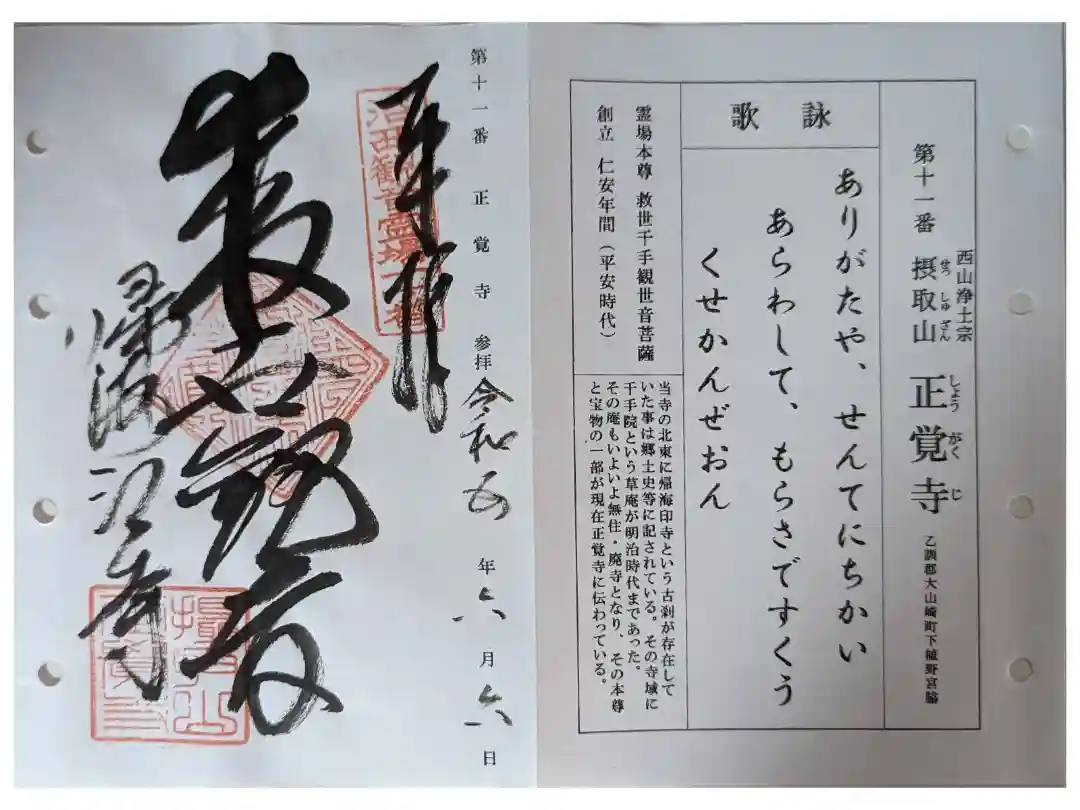 西山浄土宗
第十一番 摂取山 正覚寺 乙訓郡大山崎町下植野宮脇
せっ しゅ ざん しょう がく じ
詠歌
ありがたや、せんてにちかい
あらわして、もらさですくう
くせかんぜおん
霊場本尊 救世千手観世音菩薩
創立 仁安年間（平安時代）
当寺の北東に帰海印寺という古刹が存在して
いた事は郷土史等に記されている。その寺域に
千手院という草庵が明治時代まであった。
その庵もいよいよ無住・廃寺となり、その本尊
と宝物の一部が現在正覚寺に伝わっている。
第十一番 正覚寺 参拝 令和五年六月六日
奉拝
洛西観音霊場十一番
観音